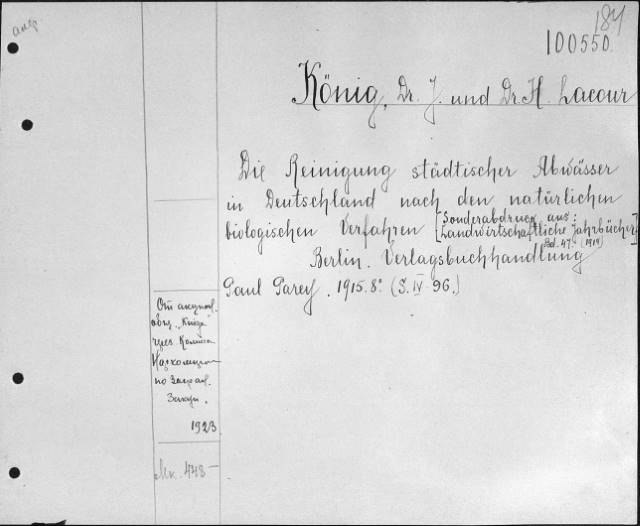 184
100550.
König, Dr. J. und Dr. H. Lacour
Die Reinigung städtischer Abwässer
in Deutschland nach den natürlichen
biologischen Verfahren [Sonderabdruck aus:
Landwirtschaftliche Jahrbücher]
Bd. 47. (1914)
Berlin. Verlagsbuchhandlung
Paul Parey. 1915. 8° (S. IV 96.)
От акцион.
общ. "Книга"
через
по Заграв.
Закуп.
1923
Мк. 448-